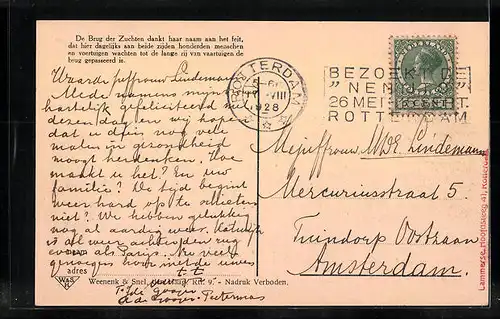 De Brug der Zuchten dankt haar naam aan het feit,
dat hier dagelijks aan beide zijden honderden menschen
en voertuigen wachten tot de lange rij van vaartuigen de
brug gepasseerd is.
Waarde juffrouw Lindeman
Mede namens mijn
hartelijk gefeliciteerd met
dezen dag en wij hopen
dat u dien nog vele
malen in gezondheid
moogt herdenken. Hoe
maakt u het? En uw
familie? De tijd begint
weer hard op te schieten
niet? We hebben gelukkig
nog al aardig weer. Katwijk
is al weer achter den rug
evenals Parijs. Na vele
groeten
t.t.
adres
W&S
R
Weenenk & Snel, Rd. 9. - Nadruk Verboden.
ROTTERDAM
VIII
1928
BEZOEKT DE
"NEN
26 MEI
ROTTERDAM
CENT
Mejuffrouw MDE. Lindeman
Mercuriusstraat 5.
Tuindorp Oostzaan
Amsterdam.
41, Rotterdam